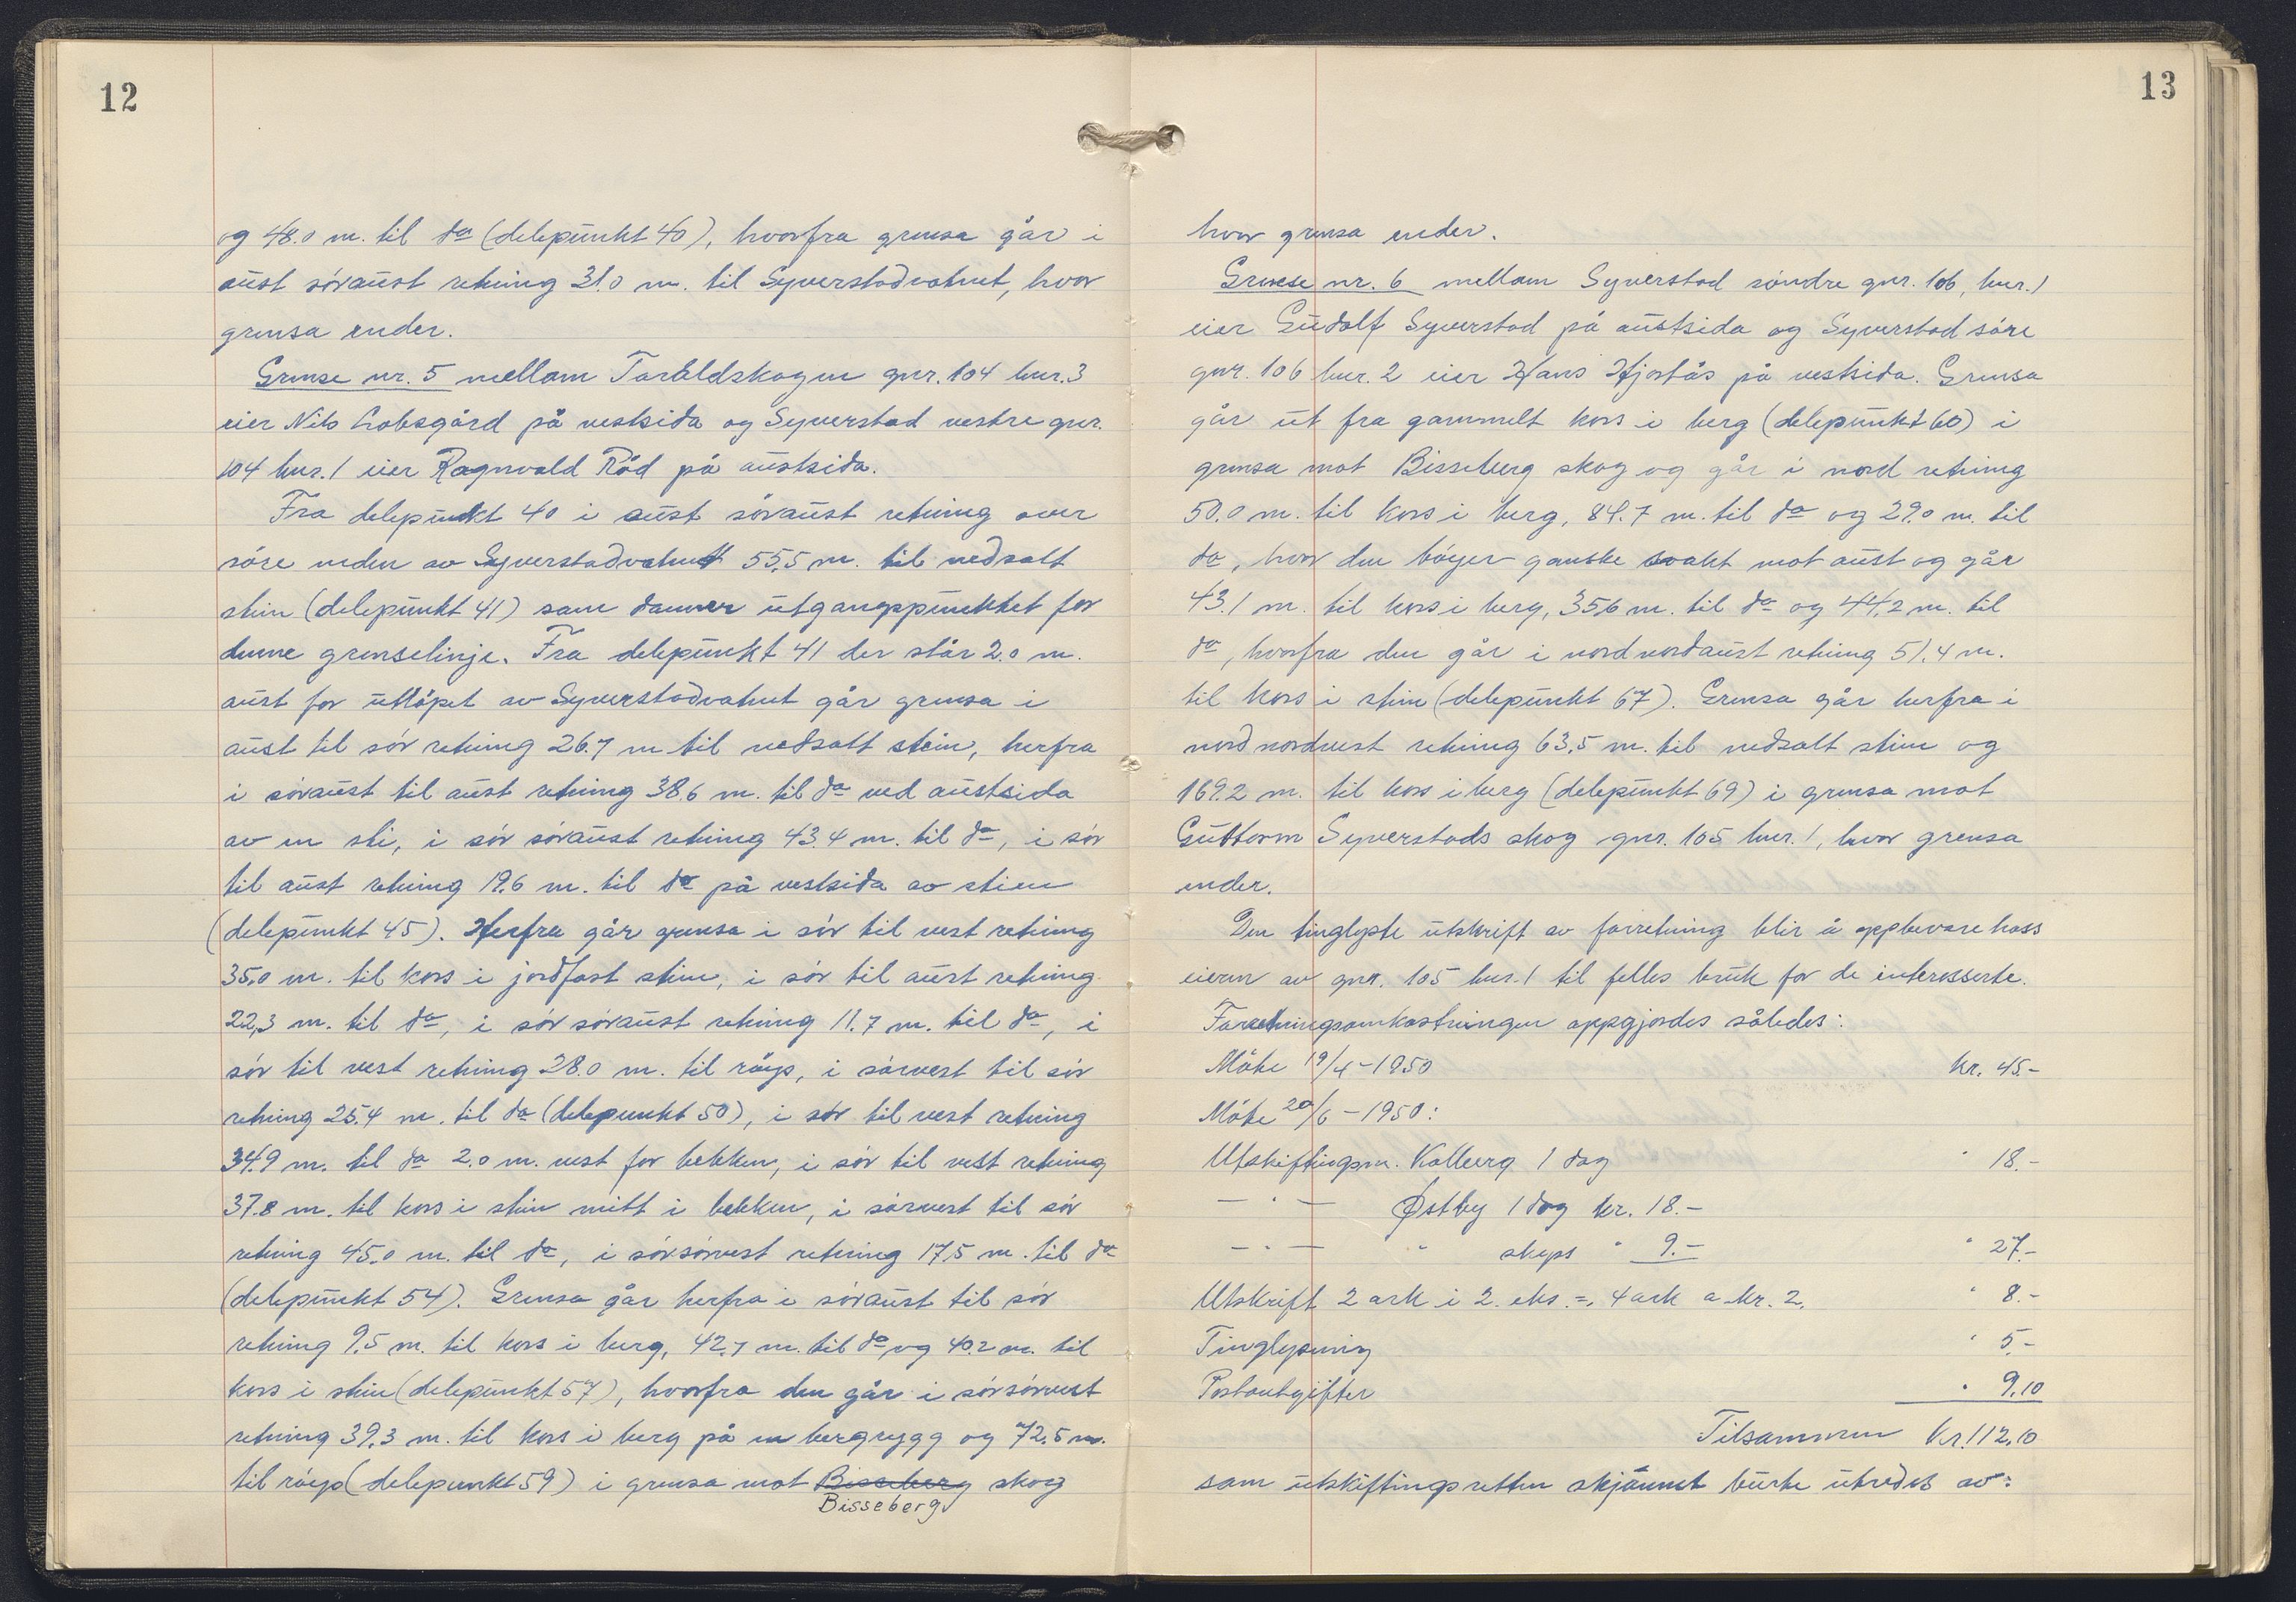 12
og 48.0 m. til do (delepunkt 40), hvorfra grensa går i
aust søraust retning 31.0 m. til Syverstadvatnet, hvor
grensa ender.
Grense nr. 5 mellom Taraldskogen gnr. 104 bnr. 3
eier Nils Lobsgård på vestsida og Syverstad vestre gnr.
104 bnr. 1 eier Ragnvald Röd på austsida.
Fra delepunkt 40 i aust söraust retning over
söre enden av Syverstadvatnet 55,5 m. til nedsatt
stein (delepunkt 41) som danner utgangspunktet for
denne grenselinje. Fra delepunkt 41 der står 2.0 m.
aust for utlöpet av Syverstadvatnet går grensa i
aust til sör retning 26.7 m til nedsatt stein, herfra
i söraust til aust retning 38.6 m. til do ved austsida
av en sti, i sör söraust retning 43.4 m. til do, i sör
til aust retning 19.6 m. til do på vestsida av stien
(delepunkt 45). Herfra går grensa i sör til vest retning
35.0 m. til kors i jordfast stein, i sör til aust retning
22,3 m. til do, i sör söraust retning 11.7 m. til do, i
sör til vest retning 28.0 m. til röys, i sörvest til sör
retning 25.4 m. til do (delepunkt 50), i sör til vest retning
34.9 m. til do 2.0 m. vest for bekken, i sör til vest retning
37.8 m. til kors i stein mitt i bekken, i sörvest til sör
retning 45.0 m. til do, i sörsörvest retning 17.5 m. til do
(delepunkt 54). Grensa går herfra i söraust til sör
retning 9.5 m. til kors i berg, 42.7 m. til do og 40.2 m. til
kors i stein (delepunkt 57), hvorfra den går i sörsörvest
retning 39.3 m. til kors i berg på en bergrygg og 72.5 m.
til röys (delepunkt 59) i grensa mot Bisseberg skog
Bisseberg
13
hvor grensa ender.
Grense nr. 6 mellom Syverstad söndre gnr. 106, bnr. 1
eier Gudolf Syverstad på austsida og Syverstad söre
gnr. 106 bnr. 2 eier Hans Hjortås på vestsida. Grensa
går ut fra gammelt kors i berg (delepunkt 60) i
grensa mot Bisseberg skog og går i nord retning
50.0 m. til kors i berg, 84.7 m. til do og 29.0 m. til
do, hvor den böyer ganske svakt mot aust og går
43.1 m. til kors i berg, 35.6 m. til do og 44.2 m. til
do, hvorfra den går i nordnordaust retning 51.4 m.
til kors i stein (delepunkt 67). Grensa går herfra i
nordnordvest retning 63,5 m. til nedsatt stein og
169.2 m. til kors i berg (delepunkt 69) i grensa mot
Guttorm Syverstads skog gnr. 105 bnr. 1, hvor grensa
ender.
Den tinglyste utskrift av forretning blir å oppbevare hoss
eieren av gnr. 105 bnr. 1 til felles bruk for de interesserte.
Forretningsomkostningen oppgjordes således:
Möte 19/4-1950 kr. 45.-
Möte 20/6-1950:
Utskiftingsm. Kolberg 1 dag " 18.-
— " — Østby 1 dag kr. 18.-
— " — " skyss " 9.- " 27.-
Utskrift 2 ark i 2 eks. =, 4 ark a kr. 2. " 8.-
Tinglysning " 5.-
Postoutgifter " 9.10
Tilsammen kr. 112.10
som utskiftingsretten skjönnet burte utredes av: